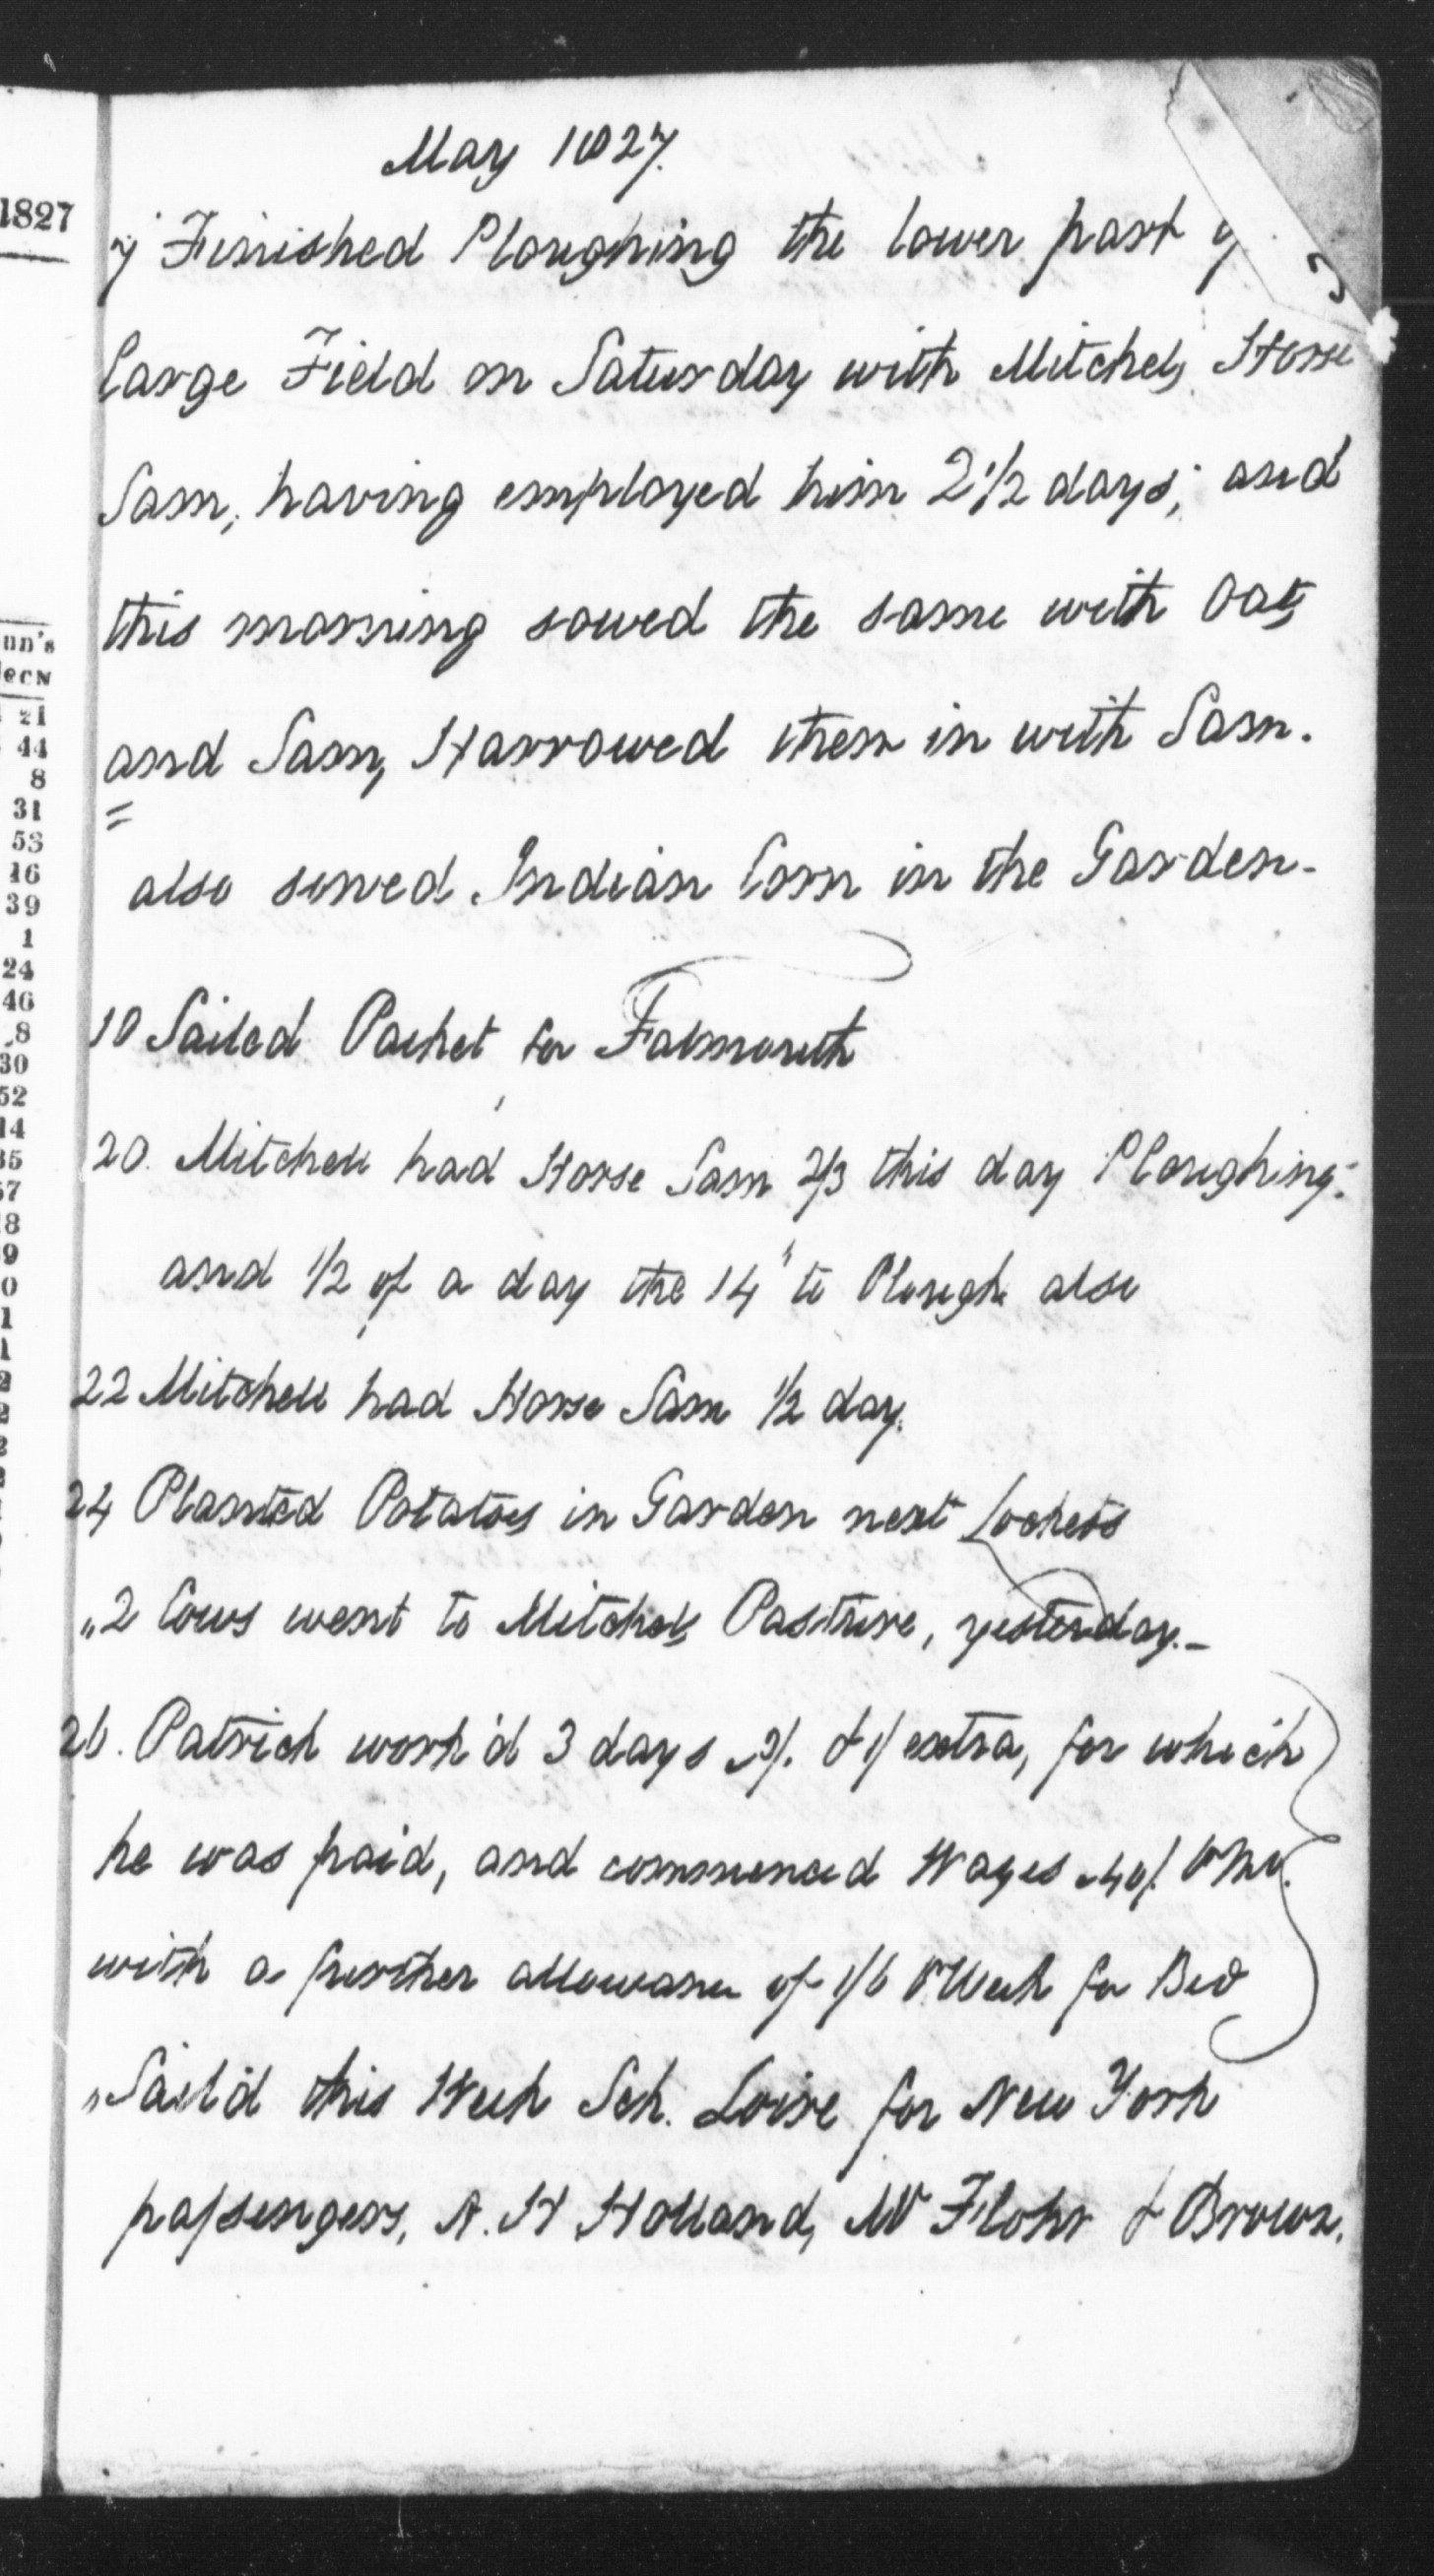 May 1827.
7 Finished Ploughing the lower part
large Field on Saturday with Mitchels Horse
Sam, having employed him 2 1/2 days; and
this morning sowed the same with Oats
and Sam, Harrowed them in with Sam.
also sowed Indian Corn in the Garden-
10 Sailed Packet for Falmouth
20. Mitchell had Horse Sam 2/3 this day Ploughing.
and 1/2 of a day the 14" to Plough also
22 Mitchell had Horse Sam 1/2 day.
24 Planted Potatoes in Garden next Lockets
„2 Cows went to Mitchels Pasture, yesterday.-
26. Patrick work'd 3 days & 1/ extra, for which
he was paid, and commenced Wages 40/.
with a further allowance of 1/6 Week for Bed
„Sail'd this Week Sch. Loire for New York
passengers, A. H Holland, Mr Flohr & Brown.
1827
un's
21
44
8
31
53
16
39
1
24
46
8
30
52
14
35
57
18
9
0
1
1
2
2
2
2